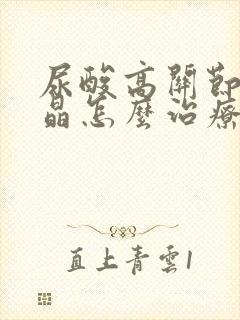 尿酸高關節
晶怎麼治療
直上青雲1